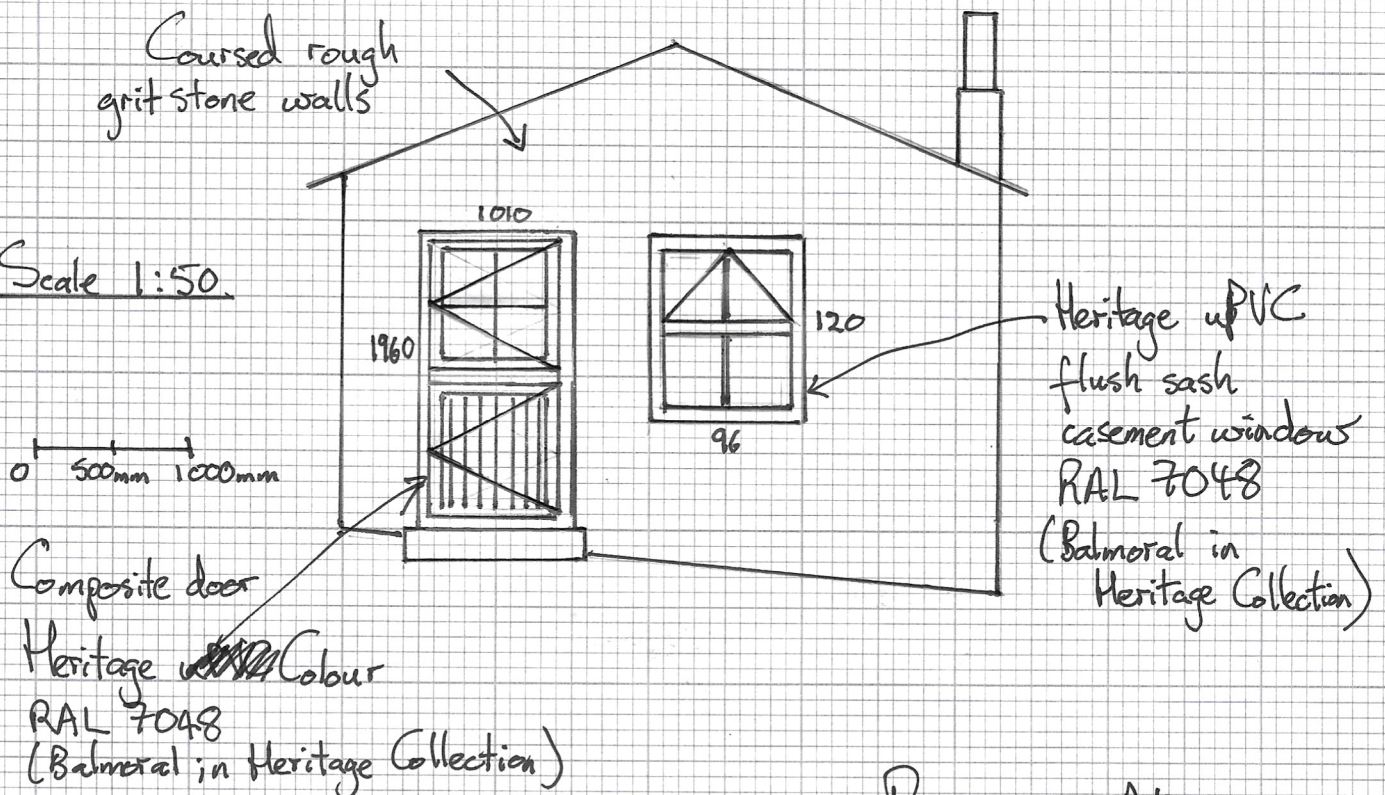 Coursed rough
gritstone walls
1010
Scale 1:50.
1960
120
96
0 500mm 1000mm
Heritage uPVC
flush sash
casement window
RAL 7048
(Balmoral in
Heritage Collection)
Composite door
Heritage Colour
RAL 7048
(Balmoral in Heritage Collection)